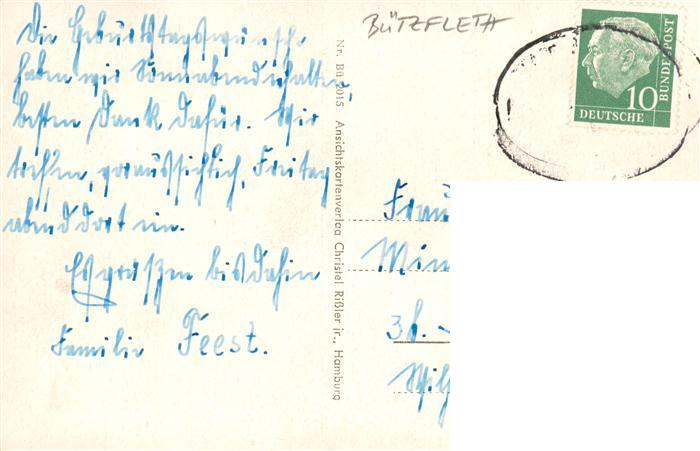 Die Geburtstagswünsche
haben wir Sonnabend erhalten,
besten Dank dafür. Wir
treffen, voraussichtlich, Freitag
abend dort ein.
Es grüßen bis dahin
Familie Feest.
Nr. Bü 2015 Ansichtskartenverlag Christel Rißler jr., Hamburg
BÜTZFLETH
10
DEUTSCHE
BUNDESPOST
Frau
Min
Wilh